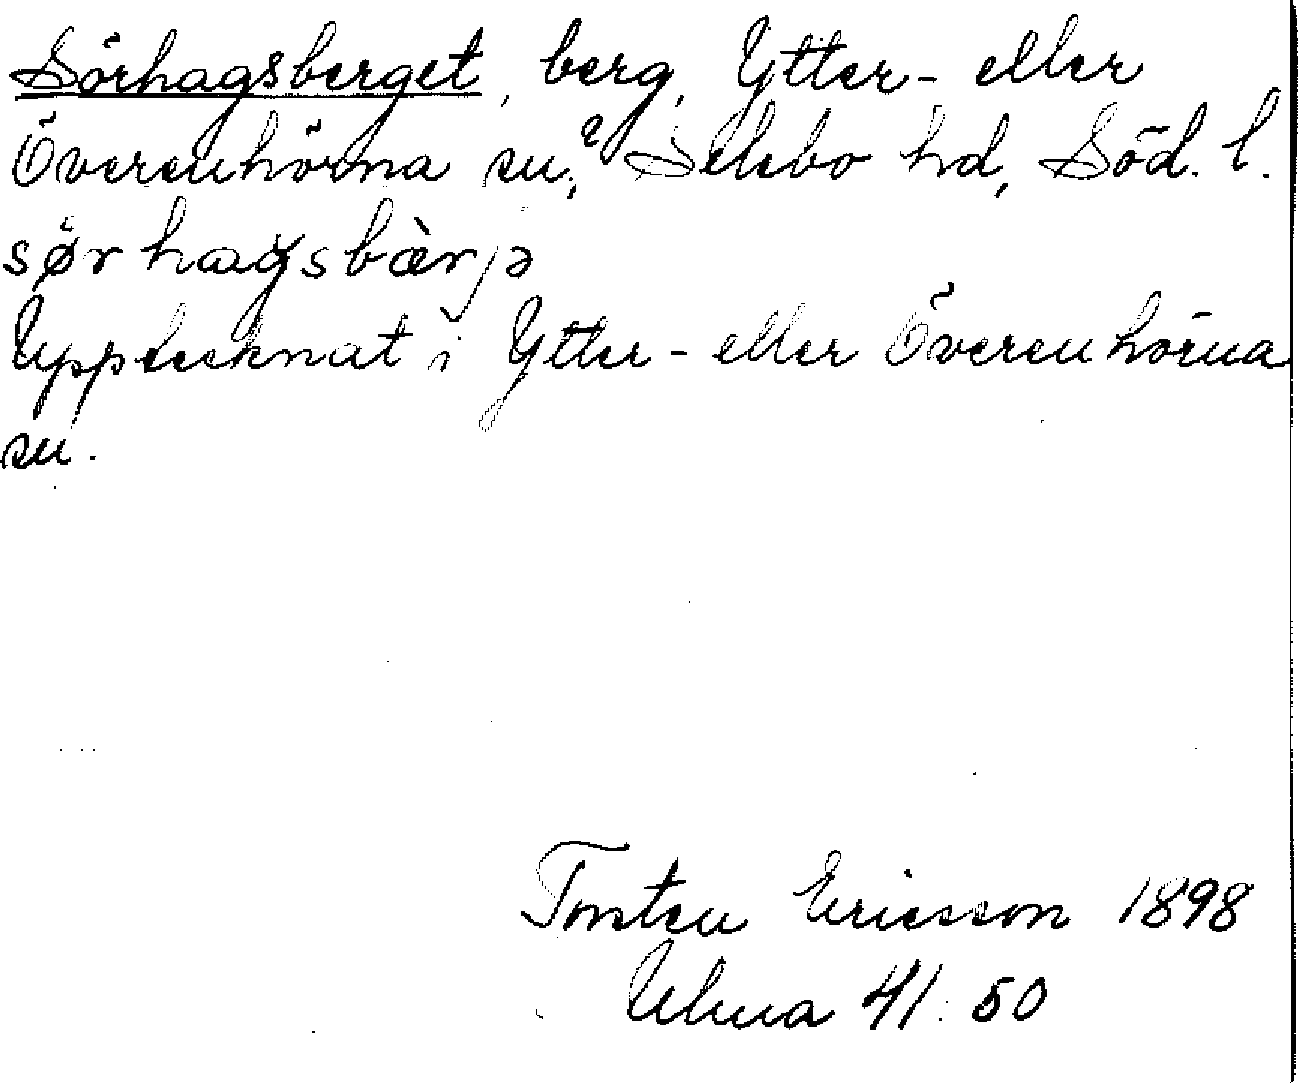 Sörhagsberget, berg, Ytter- eller
Överenhörna sn?, Selebo hd, Söd. l.
sørhagsbærjə
Upptecknat i Ytter- eller Överenhörna
sn.
Torsten Ericsson 1898
Ulma 41:50